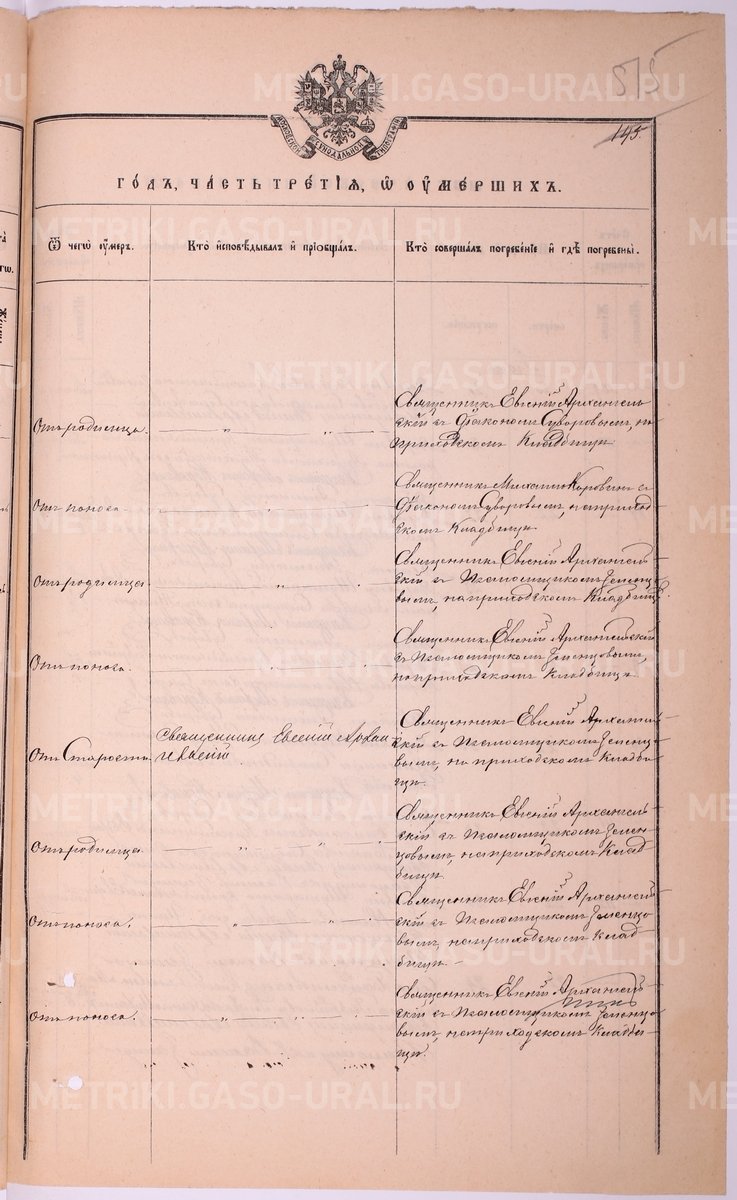 515
145.
МОСКОВСКОЙ СИНОДАЛЬНОЙ ТИПОГРАФІИ
ГО́ДЪ, ЧА́СТЬ ТРЕ́ТІЯ, Ѽ ОУ҆МЕ́РШИХЪ.
Ѿ чегѡ̀ оу҆́меръ.
Кто̀ и҆сповѣ́дывалъ и҆ прїѡбща́лъ.
Кто̀ соверша́лъ погребе́нїе и҆ гдѣ̀ погребены̀.
Отъ родимца.
„ „
Священникъ Евгеній Архангель-
скій съ Діакономъ Суворовымъ, на
приходскомъ Кладбищѣ
Отъ поноса.
„ „
Священникъ Михаилъ Коровинъ съ
Діакономъ Суворовымъ, на приход-
скомъ Кладбищѣ.
Отъ родимца
„
Священникъ Евгеній Архангель-
скій съ Псаломщикомъ Зеленцо-
вымъ, на приходскомъ Кладбищѣ.
Отъ поноса.
„
Священникъ Евгеній Архангельскій
съ Псаломщикомъ Зеленцовымъ,
на приходскомъ Кладбищѣ.
Отъ Старости
Священникъ Евгеній Архан-
гельскій
Священникъ Евгеній Архангель-
скій съ Псаломщикомъ Зеленцо-
вымъ, на приходскомъ Кладби-
щѣ.
Отъ родимца
„ „
Священникъ Евгеній Архангель-
скій съ Псаломщикомъ Зелен-
цовымъ, на приходскомъ Клад-
бищѣ.
Отъ поноса.
„ „
Священникъ Евгеній Архангель-
скій съ Псаломщикомъ Зеленцо-
вымъ, на приходскомъ Клад-
бищѣ.
Отъ поноса.
„ „
Священникъ Евгеній Архангель-
скій съ Псаломщикомъ Зеленцо-
вымъ, на приходскомъ Кладби-
щѣ.
METRIKI.GASO-URAL.RU
METRIKI.GASO-URAL.RU
METRIKI.GASO-URAL.RU
METRIKI.GASO-URAL.RU
METRIKI.GASO-URAL.RU
METRIKI.GASO-URAL.RU
METRIKI.GASO-URAL.RU
METRIKI.GASO-URAL.RU